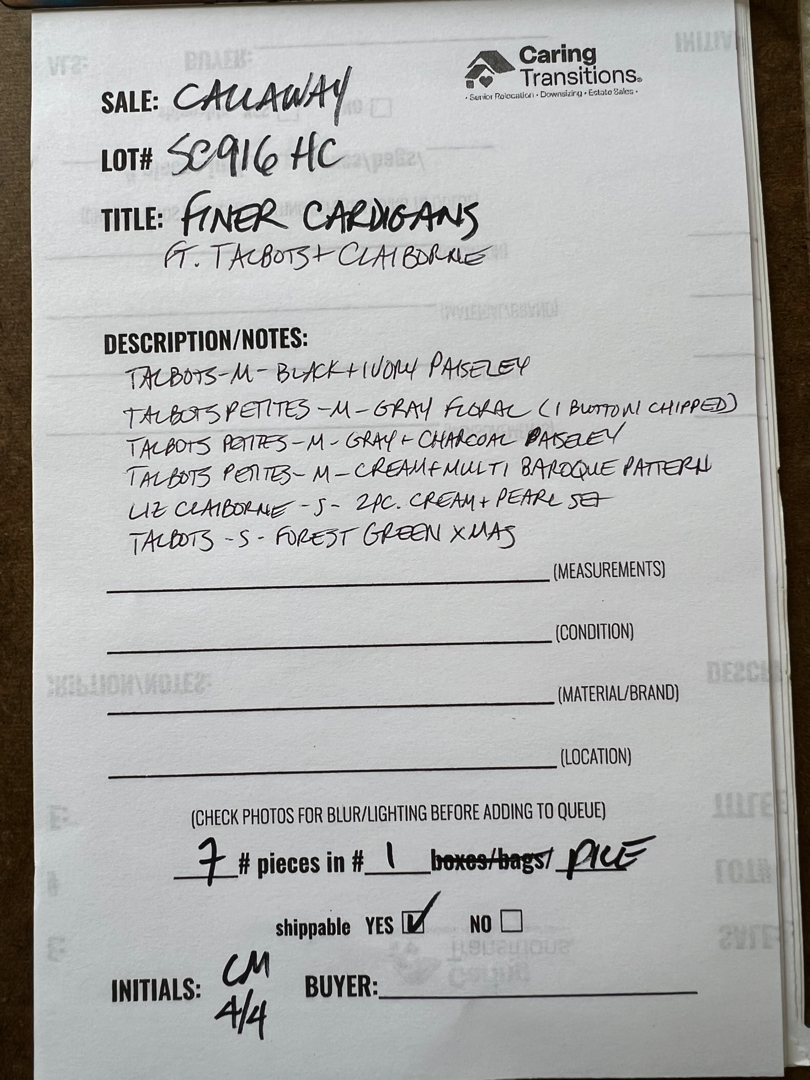 Caring
Transitions®
• Senior Relocation • Downsizing • Estate Sales •
SALE: CALLAWAY
LOT# SC916 HC
TITLE: FINER CARDIGANS
FT. TALBOTS + CLAIBORNE
DESCRIPTION/NOTES:
TALBOTS-M-BLACK+IVORY PAISELEY
TALBOTS PETITES-M-GRAY FLORAL (1 BUTTON CHIPPED)
TALBOTS PETITES-M-GRAY+CHARCOAL PAISELEY
TALBOTS PETITES-M-CREAM+MULTI BAROQUE PATTERN
LIZ CLAIBORNE-S-2PC. CREAM+PEARL SET
TALBOTS-S-FOREST GREEN XMAS
(MEASUREMENTS)
(CONDITION)
(MATERIAL/BRAND)
(LOCATION)
(CHECK PHOTOS FOR BLUR/LIGHTING BEFORE ADDING TO QUEUE)
7 # pieces in # 1 boxes/bags/ PILE
shippable YES ☑ NO ☐
INITIALS: CM 4/4 BUYER: